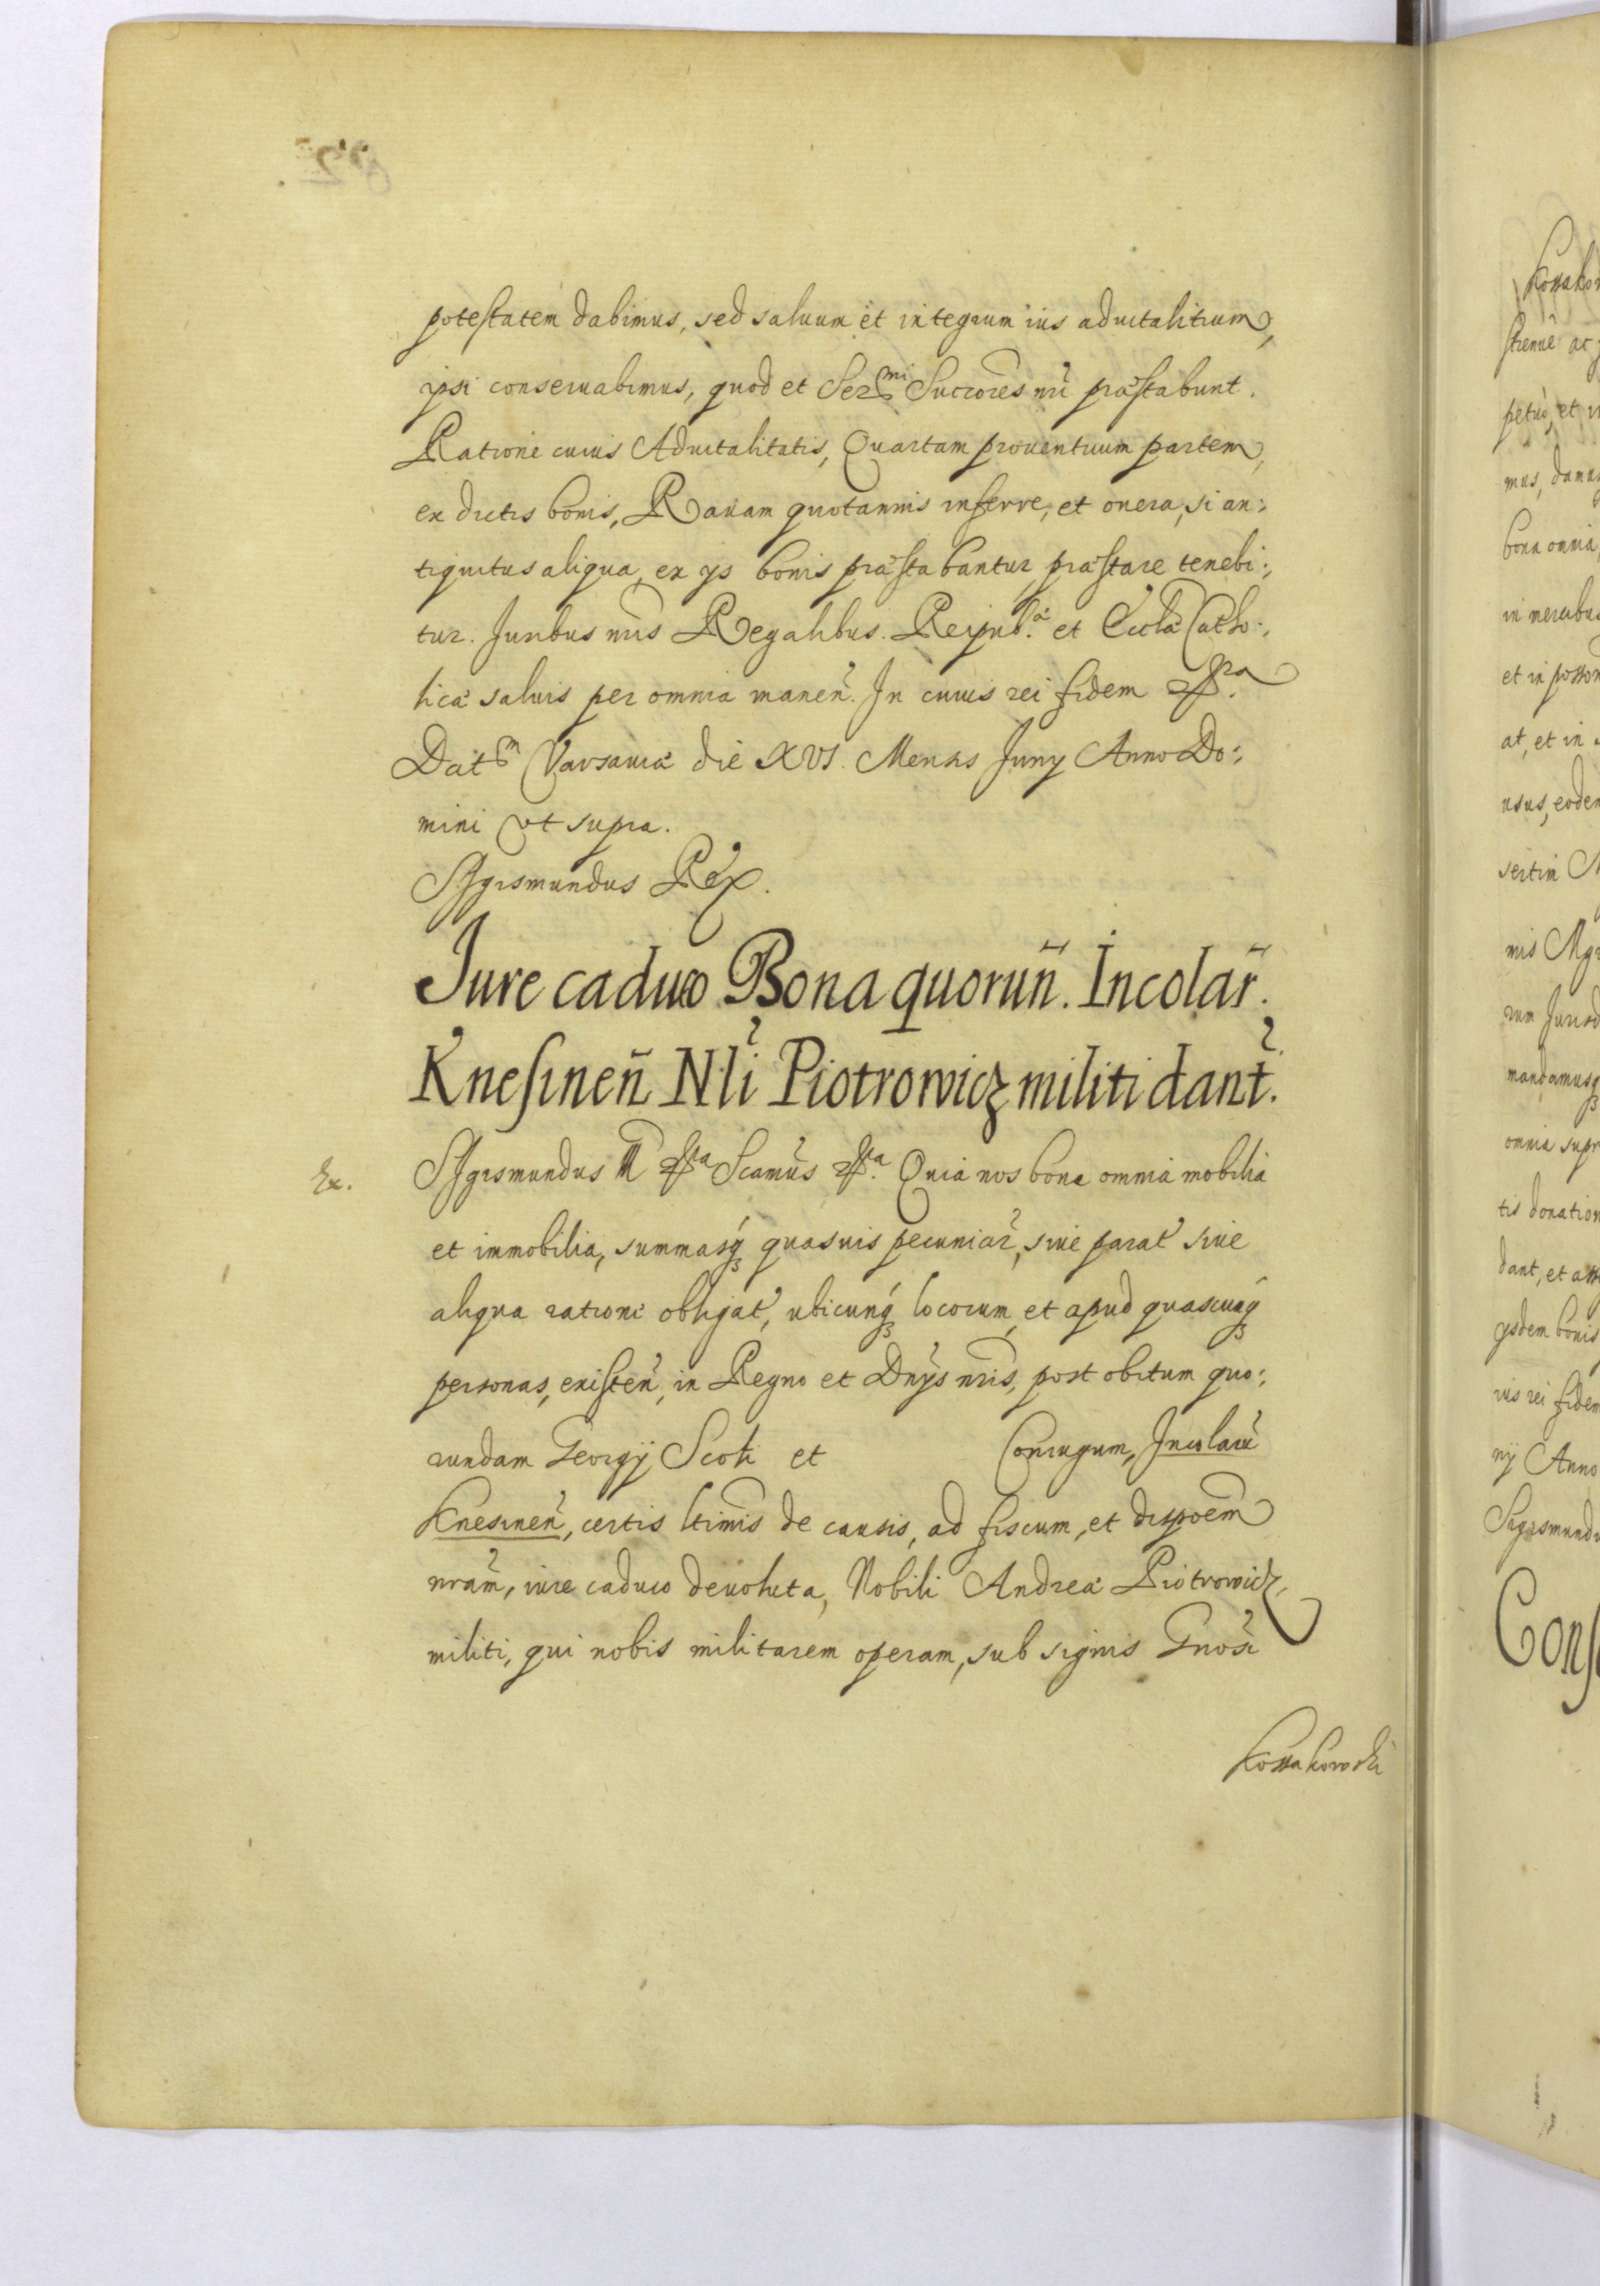 potestatem dabimus, sed saluum et integrum ius aduitalitium,
ipsi conseruabimus, quod et Ser^mi Succores nri præstabunt.
Ratione cuius Aduitalitatis, Quartam prouentuum partem,
ex dictis bonis, Rauam quotannis inferre, et onera, si an:
tiquitus aliqua, ex ys bonis præstabantur, præstare tenebi:
tur. Juribus nris Regalibus. Reipub.æ et Ecclæ Catho:
licæ saluis per omnia manen. In cuius rei fidem
Dat^m Varsauiæ die XVI. Mensis Juny Anno Do:
mini vt supra.
Sigismundus Rex.
Jure caduco Bona quorun̄. Incolar̄.
Knesinen̄ Nli Piotrowicz militi dant.
Ex.
Sigismundus III Scamus Quia nos bona omnia mobilia
et immobilia, summasq₃ quasuis pecuniar, siue parat siue
aliqua ratione obligat, ubicunq₃ locorum, et apud quascunq₃
personas, existen, in Regno et Dnys nris, post obitum quo:
rundam Georgij Scoti et Coniugum, Incolaru
Knesinen, certis ltimis de causis, ad fiscum, et dispoem
nram, iure caduco deuoluta, Nobili Andreæ Piotrowicz,
militi, qui nobis militarem operam, sub signis Gnosi
Kossakowski
Kossako
strenuè ac
petuò, et
mus, damus
bona omnia
at, et in
usus, eodem
nis
omnia supr
tis donation
dant, et
ysdem bonis
uis rei fidem
nij Anno
Sigismund
Cons